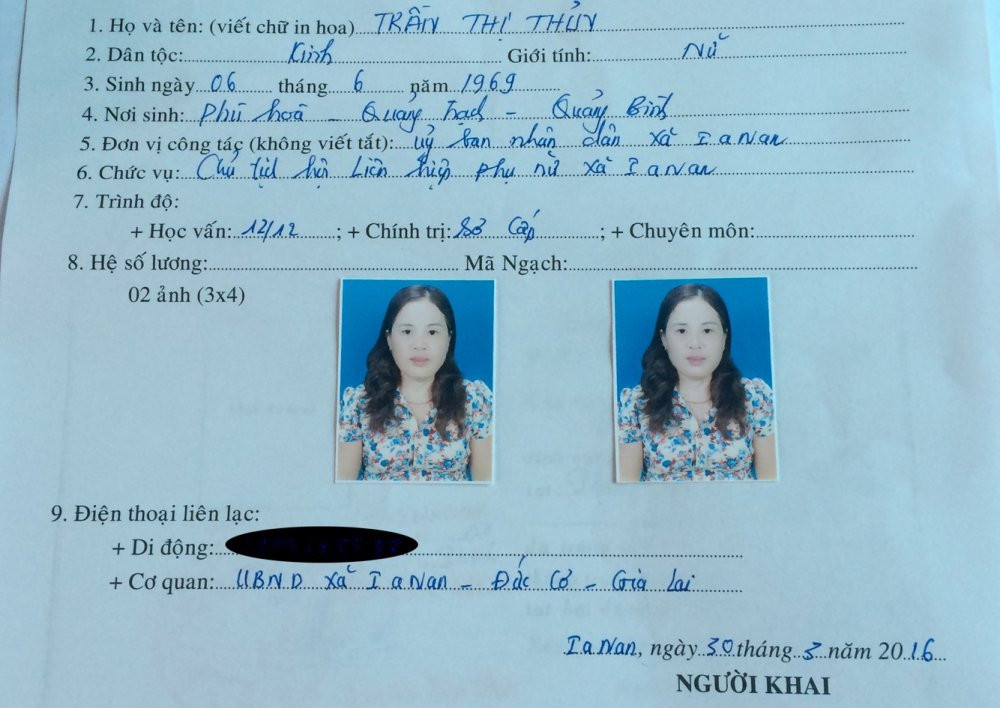 1. Họ và tên: (viết chữ in hoa) TRẦN THỊ THỦY
2. Dân tộc: Kinh Giới tính: Nữ
3. Sinh ngày 06 tháng 6 năm 1969
4. Nơi sinh: Phù hoá - Quảng Trạch - Quảng Bình
5. Đơn vị công tác (không viết tắt): uỷ ban nhân dân xã IaNan
6. Chức vụ: Chủ tịch hội Liên hiệp phụ nữ xã IaNan
7. Trình độ:
+ Học vấn: 12/12 ; + Chính trị: Sơ Cấp ; + Chuyên môn:
8. Hệ số lương: Mã Ngạch:
02 ảnh (3x4)
9. Điện thoại liên lạc:
+ Di động:
+ Cơ quan: UBND xã IaNan - Đức Cơ - Gia Lai
IaNan, ngày 30 tháng 3 năm 2016
NGƯỜI KHAI